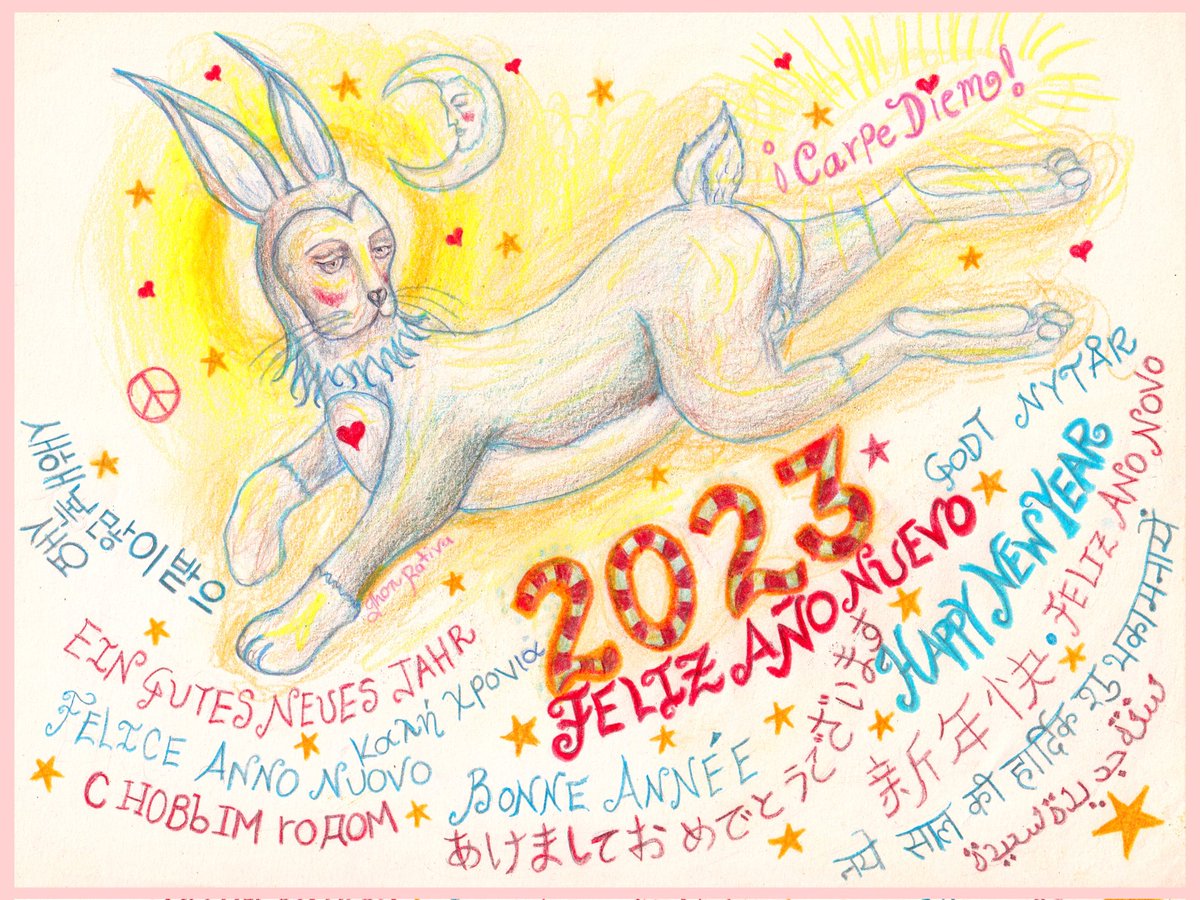 ¡Carpe Diem!
망이 받으
Jhon Rativa
2023
FELIZ AÑO NUEVO
GODT NYTÅR
HAPPY NEW YEAR
FELIZ ANO NOVO
EIN GUTES NEUES JAHR
καπή χρονιά
FELICE ANNO NUOVO
С НОВЫМ ГОДОМ
BONNE ANNÉE
あけましておめでとうでございます
新年快.
नये साल की हार्दिक शुभकामनायें
سنة جديدة سعيدة